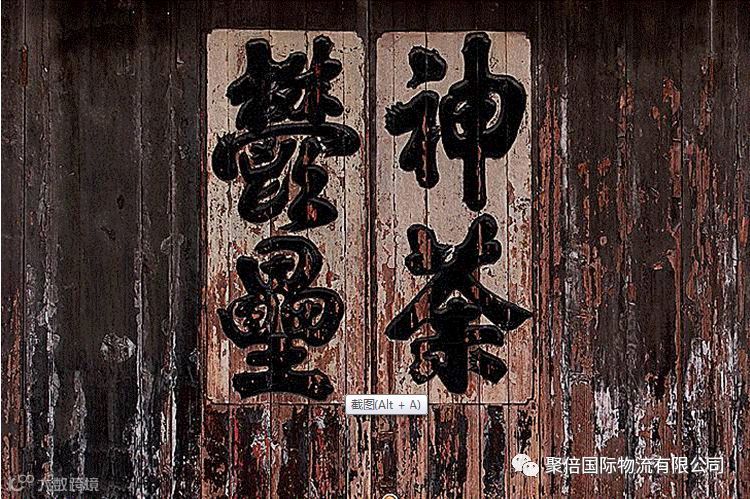 神荼
鬱壘
截图(Alt + A)
聚倍国际物流有限公司
大数跨境